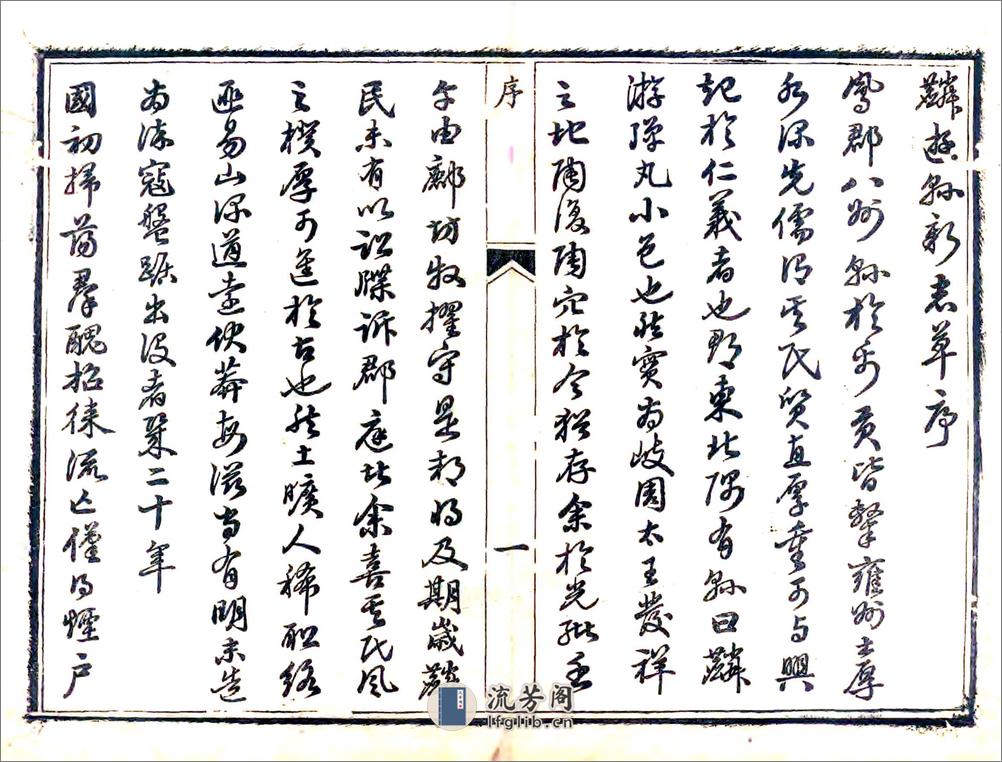 麟遊縣新志草序
鳳郡八州縣於禹貢皆繫雍州土厚
水深先儒謂其民質直厚重可與興
起於仁義者也郡東北隅有縣曰麟
游彈丸小邑也然實為岐周太王發祥
之地陶復陶穴於今猶存余於光緒壬
午由鄜坊牧擢守是郡將及期歲麟
民未有以訟牒訴郡庭比余喜其民風
之樸厚可進於古也然土曠人稀
匪易山深道遠伏莽每滋當有明末造
為流寇盤踞出沒者幾二十年
國初掃蕩羣醜招徠流亡僅得煙戶
序
一
流芳阁
lfglib.cn